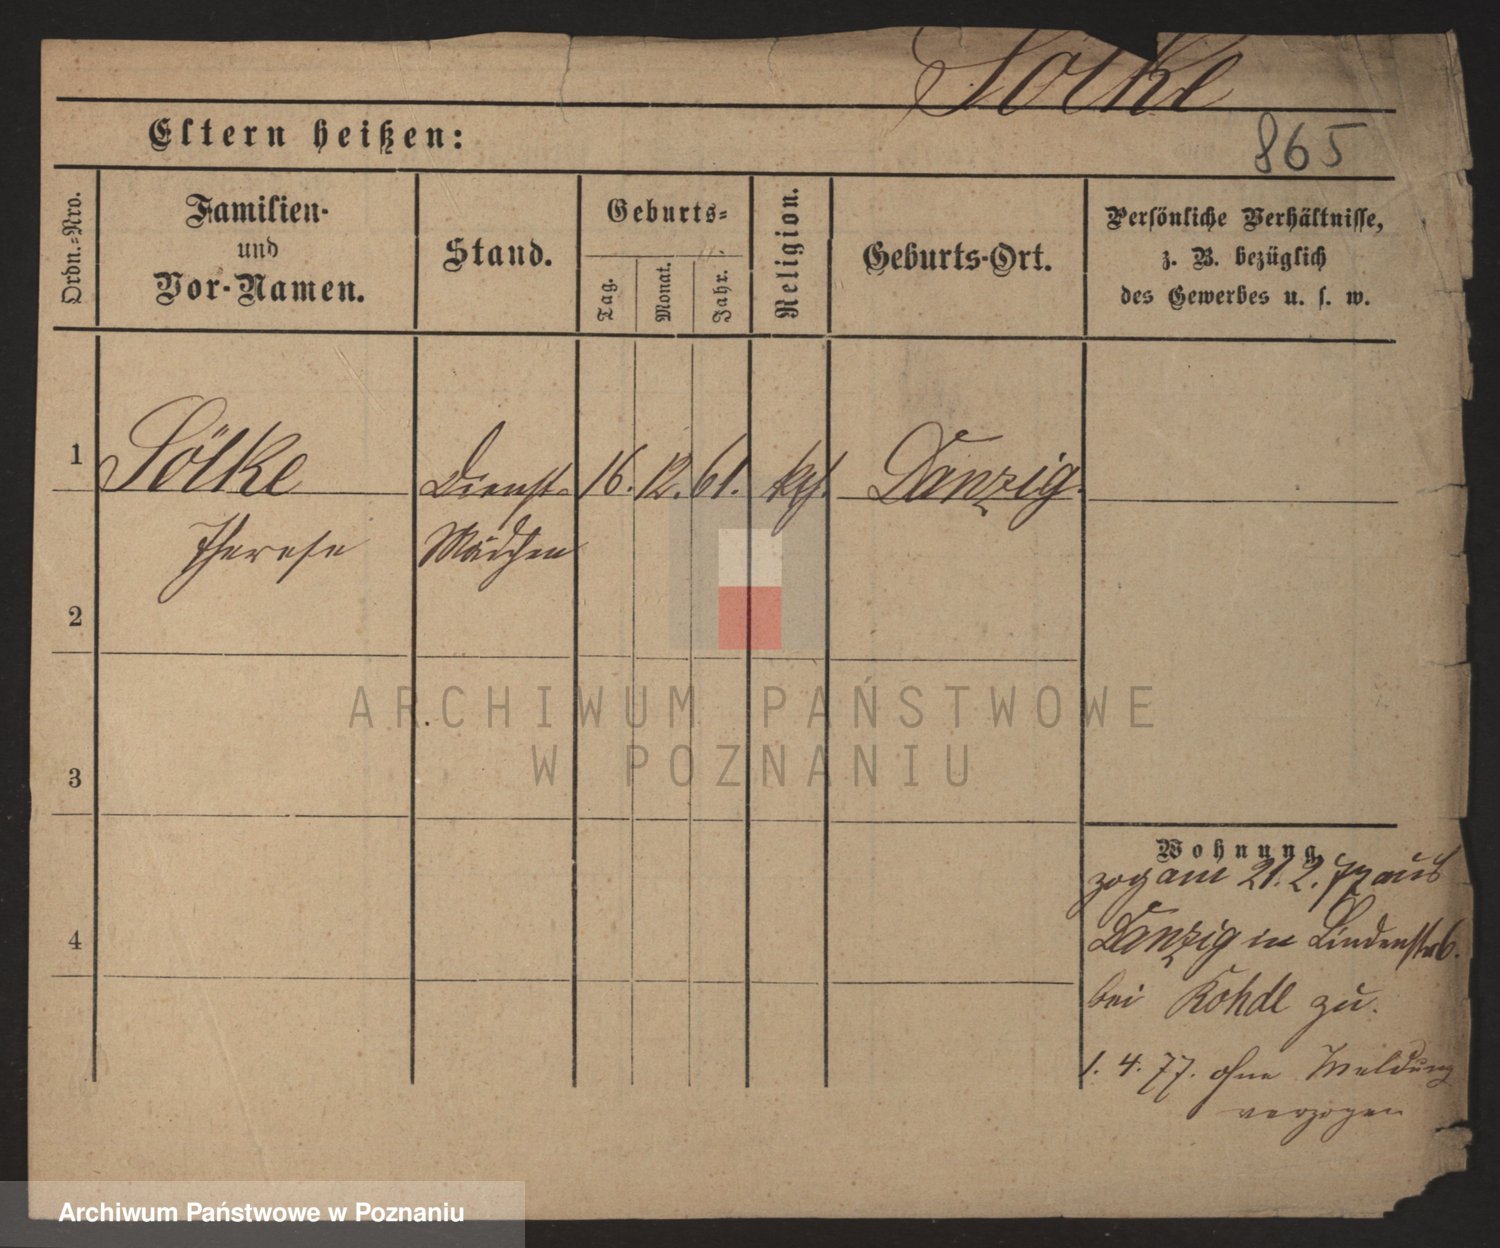 Sölke
Eltern heißen:
865
Ordn.=Nro.
Familien-
und
Vor-Namen.
Stand.
Geburts=
Tag.
Monat.
Jahr.
Religion.
Geburts-Ort.
Persönliche Verhältnisse,
z. B. bezüglich
des Gewerbes u. s. w.
1
Sölke
Dienst-
16. 12. 61.
Danzig.
Therese
Mädchen
2
ARCHIWUM PAŃSTWOWE
W POZNANIU
3
Wohnung
zog am 21. 2. 77 aus
Danzig in Lindenstr 6.
bei Kohdl zu.
4
1. 4. 77. ohne Meldung
verzogen
Archiwum Państwowe w Poznaniu